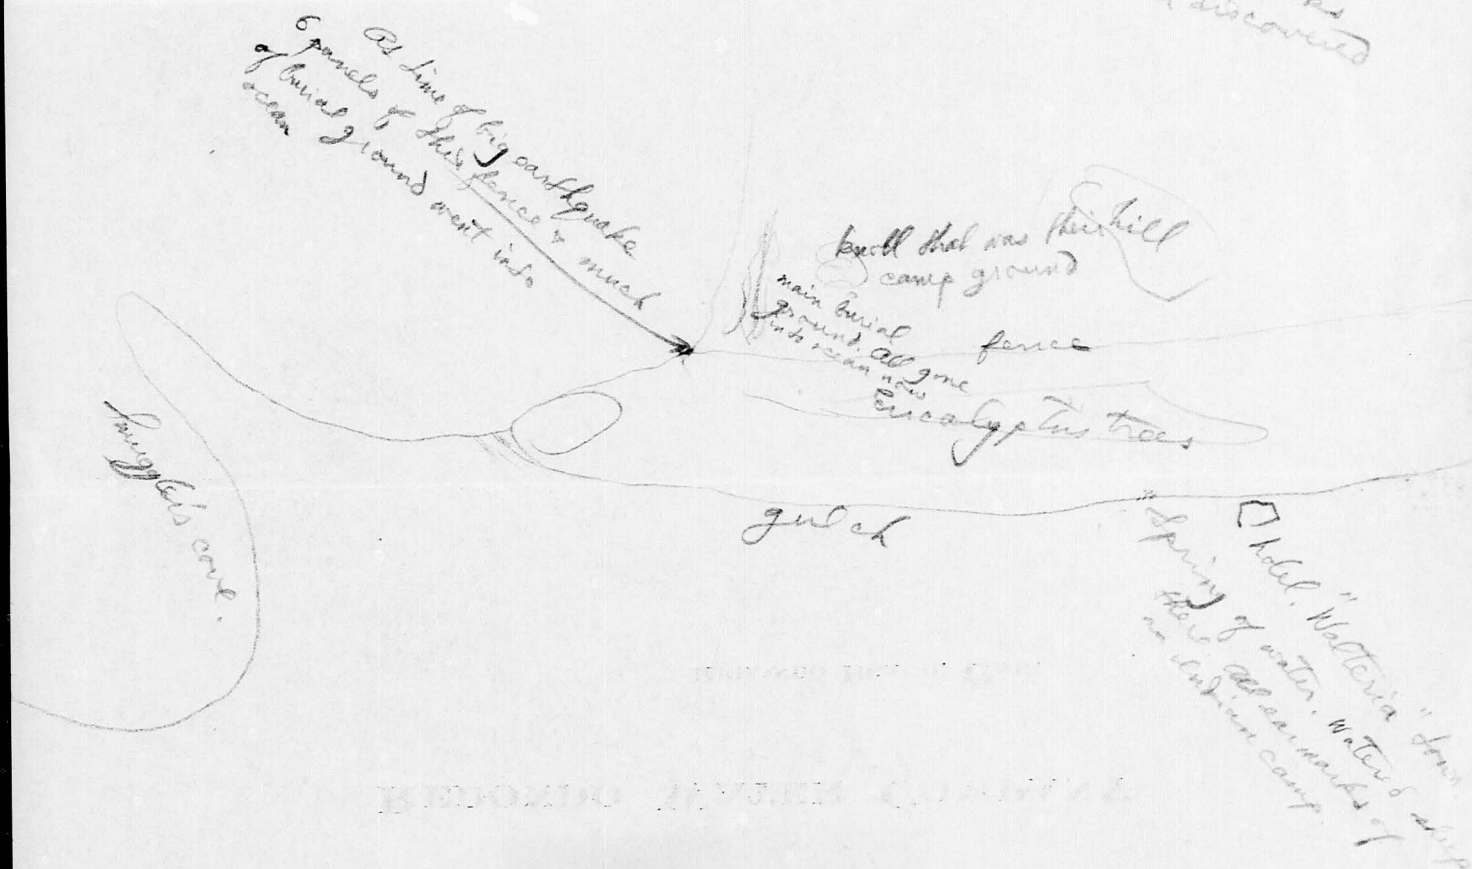 discovered
At time of big earthquake
6 panels of this fence & much
of burial ground went into
ocean
hill
knoll that was their
camp ground
main burial
ground. All gone
into ocean now
fence
Eucalyptus trees
Smuggler's cove.
gulch
hotel. "Walteria"
"Spring of water. Watered sheep
there. All earmarks of
an indian camp.
REDONDO